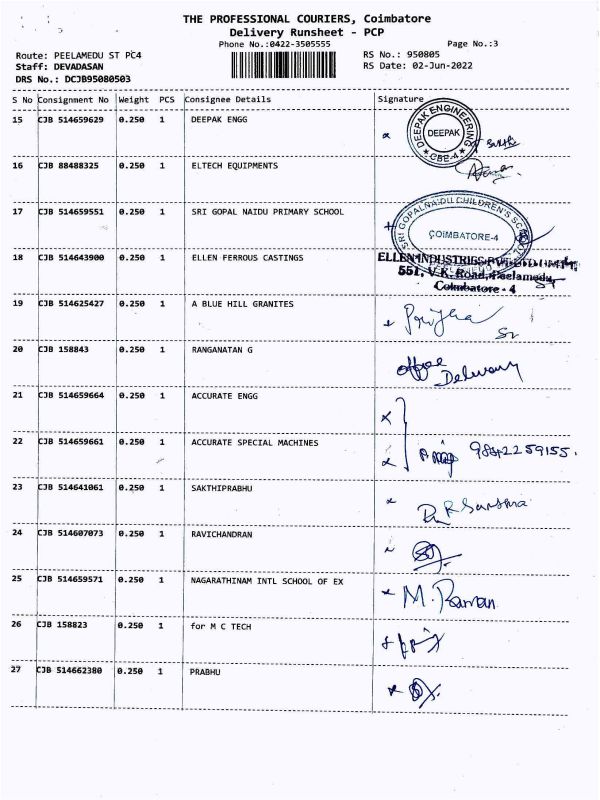 THE PROFESSIONAL COURIERS, Coimbatore
Delivery Runsheet - PCP
Phone No.:0422-3505555
Page No.:3
Route: PEELAMEDU ST PC4
RS No.: 950805
Staff: DEVADASAN
RS Date: 02-Jun-2022
DRS No.: DCJB95080503
S No Consignment No Weight PCS Consignee Details Signature
15 CJB 514659629 0.250 1 DEEPAK ENGG
DEEPAK ENGINEERING
DEEPAK
CBE-4
16 CJB 88488325 0.250 1 ELTECH EQUIPMENTS
17 CJB 514659551 0.250 1 SRI GOPAL NAIDU PRIMARY SCHOOL
SRI GOPALNAIDU CHILDREN'S SCHOOL
COIMBATORE-4
18 CJB 514643900 0.250 1 ELLEN FERROUS CASTINGS
ELLEN INDUSTRIES
551, V.K. Road, Peelamedu,
Coimbatore - 4
19 CJB 514625427 0.250 1 A BLUE HILL GRANITES
20 CJB 158843 0.250 1 RANGANATAN G
office
Delivery
21 CJB 514659664 0.250 1 ACCURATE ENGG
22 CJB 514659661 0.250 1 ACCURATE SPECIAL MACHINES
9842259155.
23 CJB 514641061 0.250 1 SAKTHIPRABHU
24 CJB 514607073 0.250 1 RAVICHANDRAN
25 CJB 514659571 0.250 1 NAGARATHINAM INTL SCHOOL OF EX
M. Raman
26 CJB 158823 0.250 1 for M C TECH
27 CJB 514662380 0.250 1 PRABHU